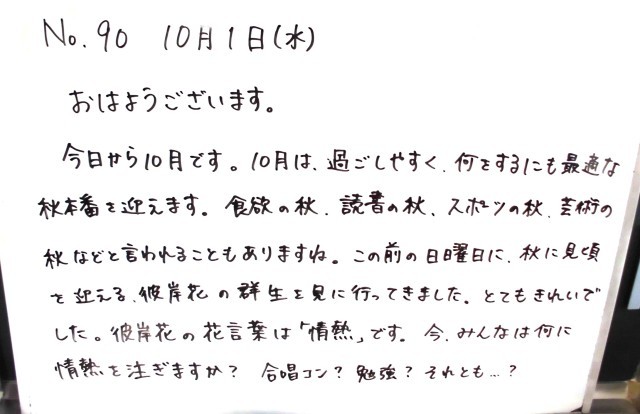 No.90 10月1日(水)
おはようございます。
今日から10月です。10月は、過ごしやすく、何をするにも最適な
秋本番を迎えます。食欲の秋、読書の秋、スポーツの秋、芸術の
秋などと言われることもありますね。この前の日曜日に、秋に見頃
を迎える、彼岸花の群生を見に行ってきました。とてもきれいで
した。彼岸花の花言葉は「情熱」です。今、みんなは何に
情熱を注ぎますか?合唱コン?勉強?それとも…?